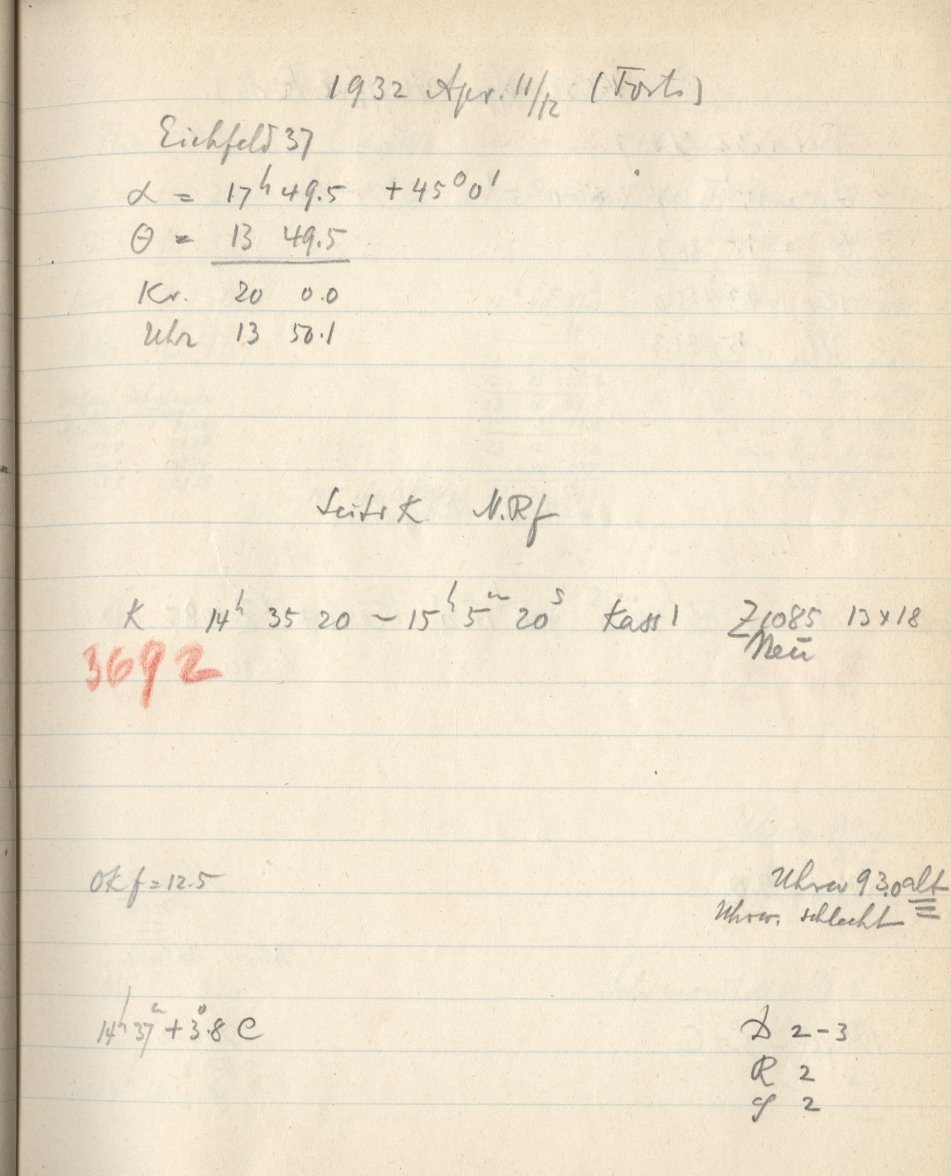 1932 Apr. 11/12 (Forts)
Eichfeld 37
α = 17h 49.5 +45° 0'
Θ = 13 49.5
Kr. 20 0.0
Uhr 13 50.1
N. Rf
K 14h 35 20 – 15h 5m 20s Kass 1 Z1085 13x18
Neu
3692
OK f=12.5 Uhrw 93.0 alt
Uhrw. schlecht
14h 37m +3°.8 C D 2-3
R 2
S 2